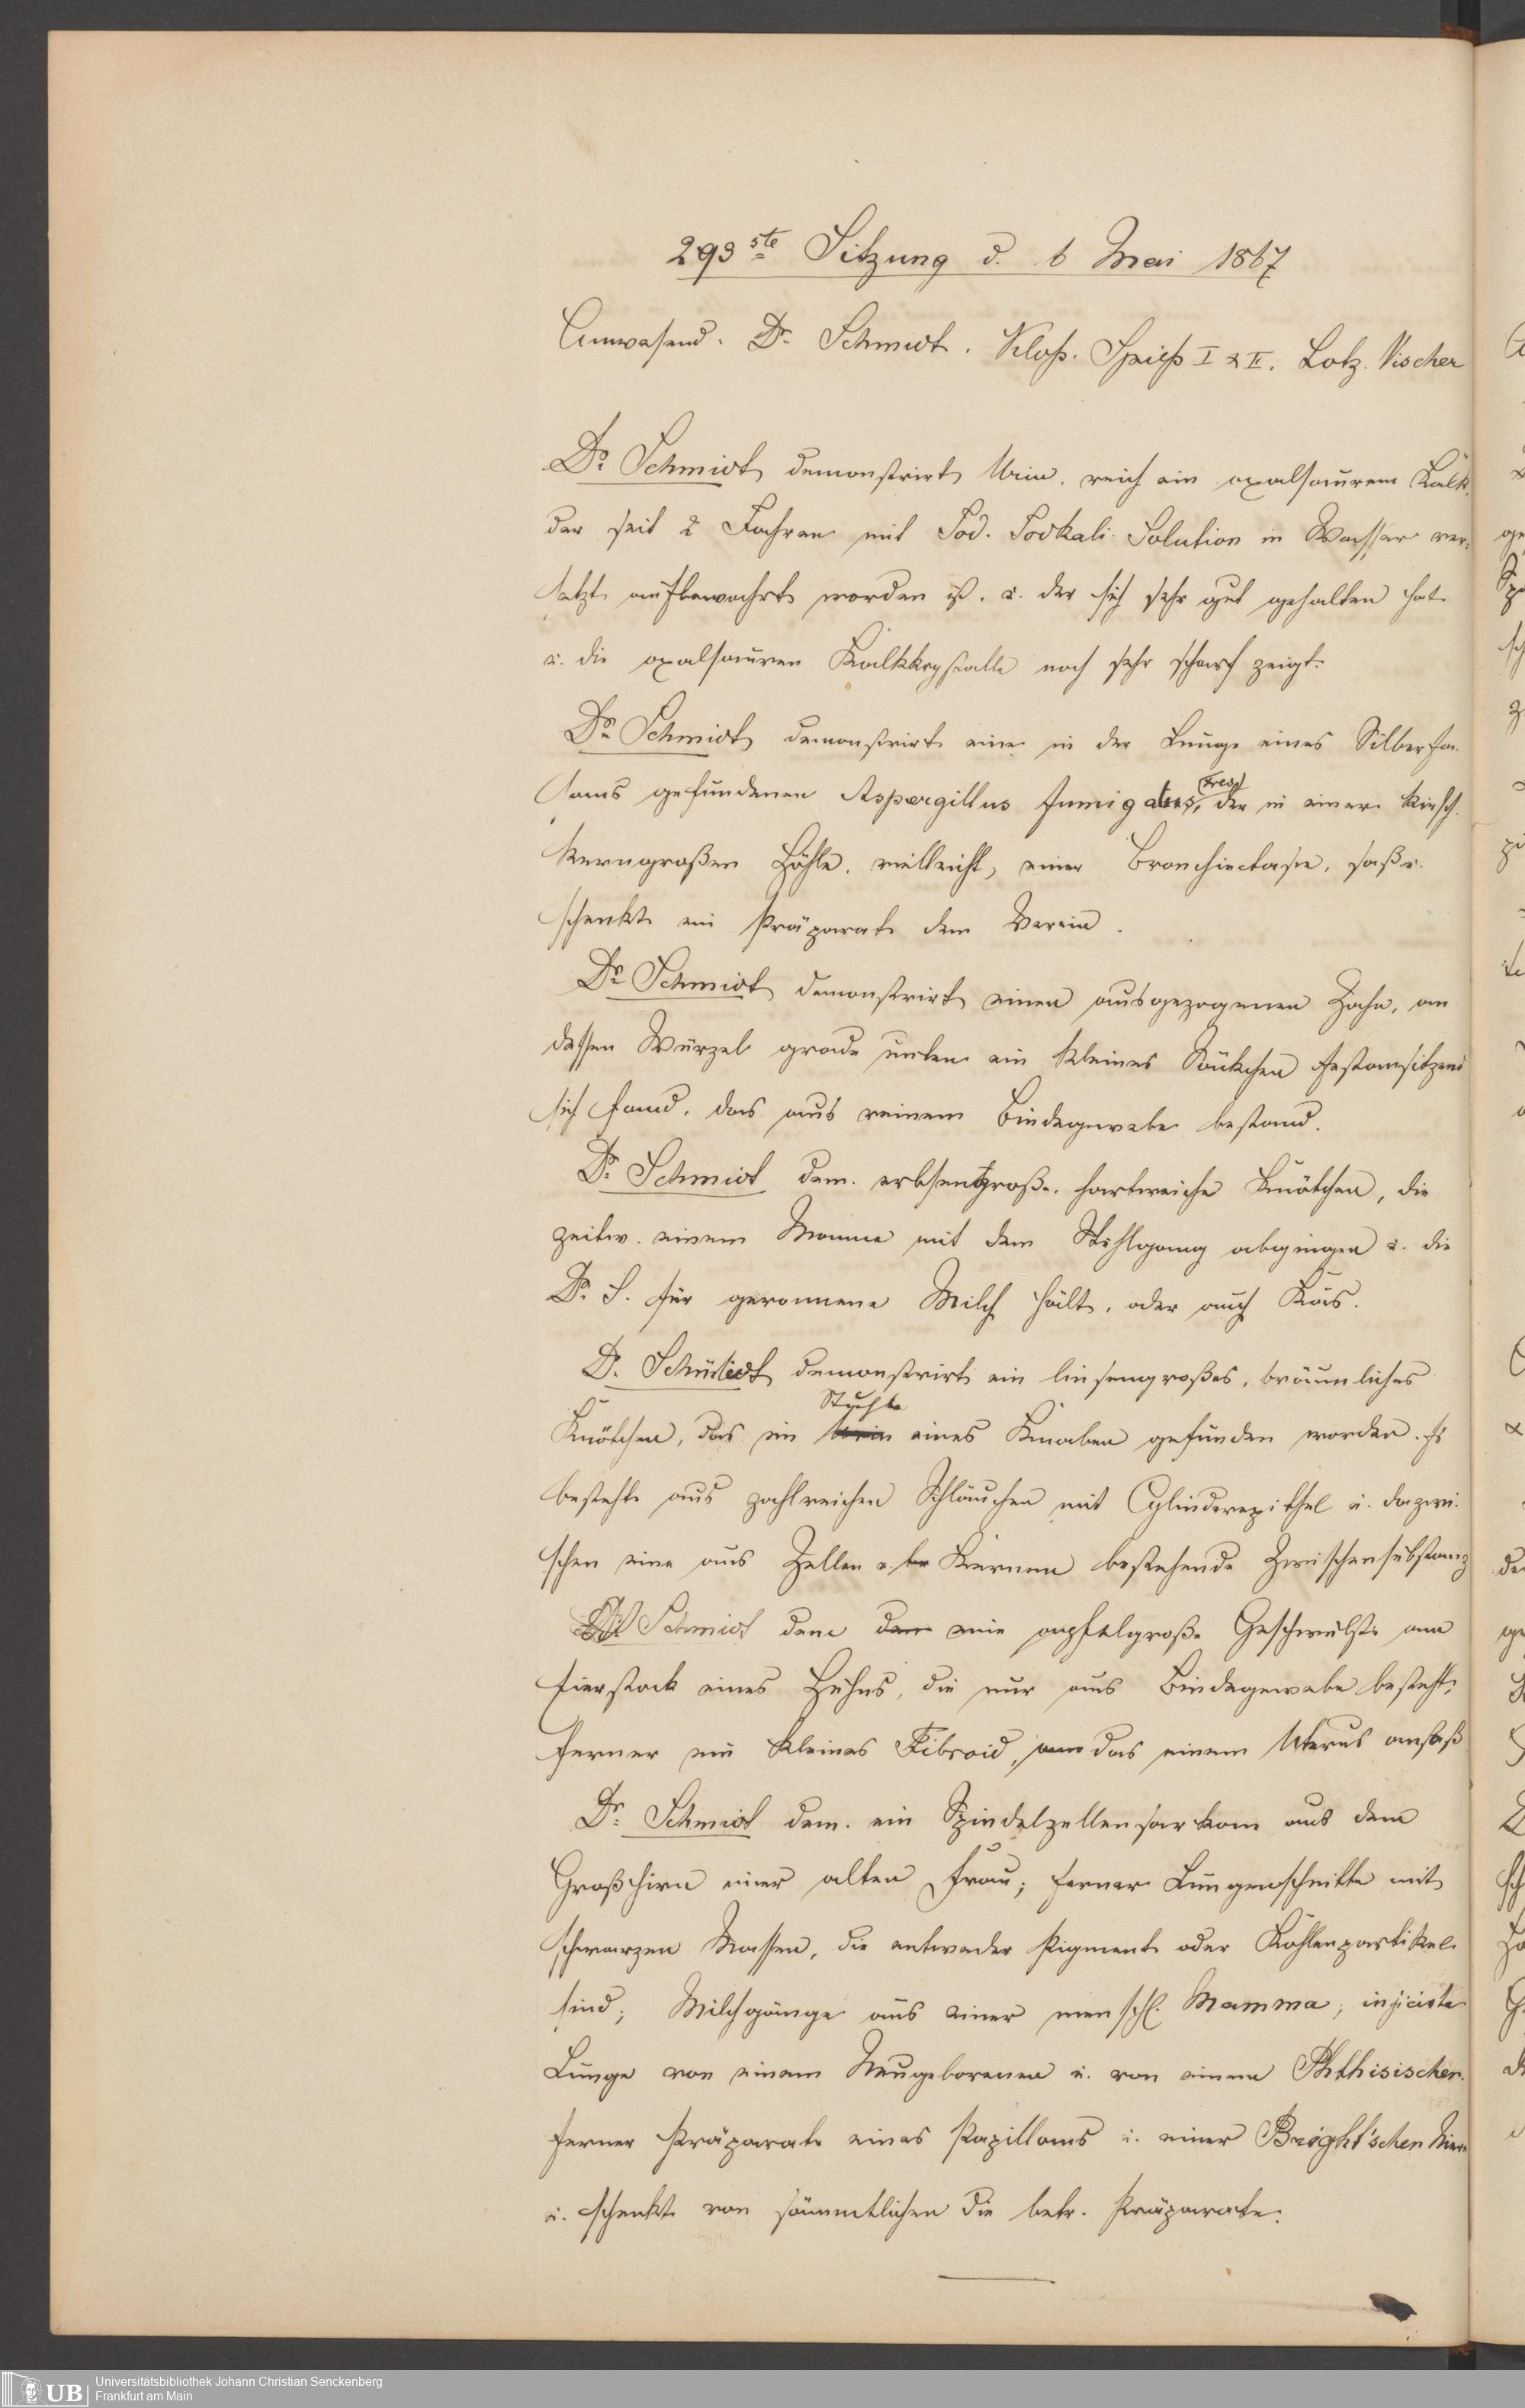 293ste Sitzung d. 6 Mai 1867
Anwesend. Dr. Schmidt. Kloß. Spieß I & II. Lotz. Vischer
Dr. Schmidt demonstrirt Urin, reich an oxalsaurem Kalk,
der seit 2 Jahren mit Jod. Jodkali Solution in Wasser ver-
setzt aufbewahrt worden ist. u. der sich sehr gut gehalten hat
u. die oxalsauren Kalkkrystalle noch sehr scharf zeigt.
Dr. Schmidt demonstrirt einen in der Lunge eines Silberfa-
sans gefundenen Aspergillus fumigatus, (Fres) der in einer kirsch-
kerngroßen Höhle, vielleicht, einer Bronchiectasie, saß u.
schenkt ein Präparat dem Verein.
Dr. Schmidt demonstrirt einen ausgezogenen Zahn, an
dessen Wurzel grade unten ein kleines Säckchen festansitzend
sich fand, das aus reinem Bindegewebe bestand.
Dr. Schmidt dem. erbsengroße, hartweiche Knötchen, die
zeitw. einem Manne mit dem Stuhlgang abgingen u. die
Dr. S. für geronnene Milch hält, oder auch Käs.
Dr. Schmidt demonstrirt ein linsengroßes, bräunliches
Knötchen, das im Urin Stuhle eines Knaben gefunden worden. Es
besteht aus zahlreichen Schläuchen mit Cylinderepithel u. dazwi-
schen eine aus Zellen u. Kernen bestehende Zwischensubstanz
Dr. Schmidt dem dem eine apfelgroße Geschwulst am
Eierstock eines Huhns, die nur aus Bindegewebe besteht,
ferner ein kleines Fibroid, das einem Uterus ansaß
Dr. Schmidt dem. ein Spindelzellensarkom aus dem
Großhirn einer alten Frau; ferner Lungenschnitte mit
schwarzen Massen, die entweder Pigment oder Kohlenpartikel
sind; Milchgänge aus einer menschl. Mamma; injicirte
Lunge von einem Neugeborenen u. von einem Phthisischen.
ferner Präparate eines Papilloms u. einer Bright'schen Niere
u. schenkt von sämmtlichen die betr. Präparate.
UB
Universitätsbibliothek Johann Christian Senckenberg
Frankfurt am Main